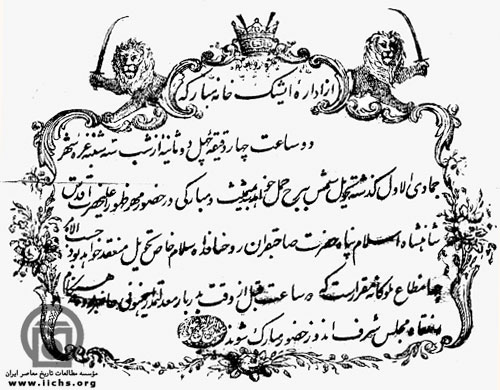 از اداره ایشک خانه مبارکه
دو ساعت چهار دقیقه چهل دو ثانیه از شب سه شنبه غره شهر
جمادی الاول گذشته تحویل شمس ببرج حمل خواهد و مبارکی در حضور مهر ظهور اعلیحضرت اقدس
شاهنشاه اسلام پناه حضرت صاحبقران روحنا فداه سلام خاص تحویل منعقد خواهد بود حسب الامر
مطاع ملوکانه مقرر است که دو ساعت قبل از وقت بدربار معدلتمدار
مجلس شرف اندوز حضور مبارک شوند
مؤسسه مطالعات تاریخ معاصر ایران
www.iichs.org